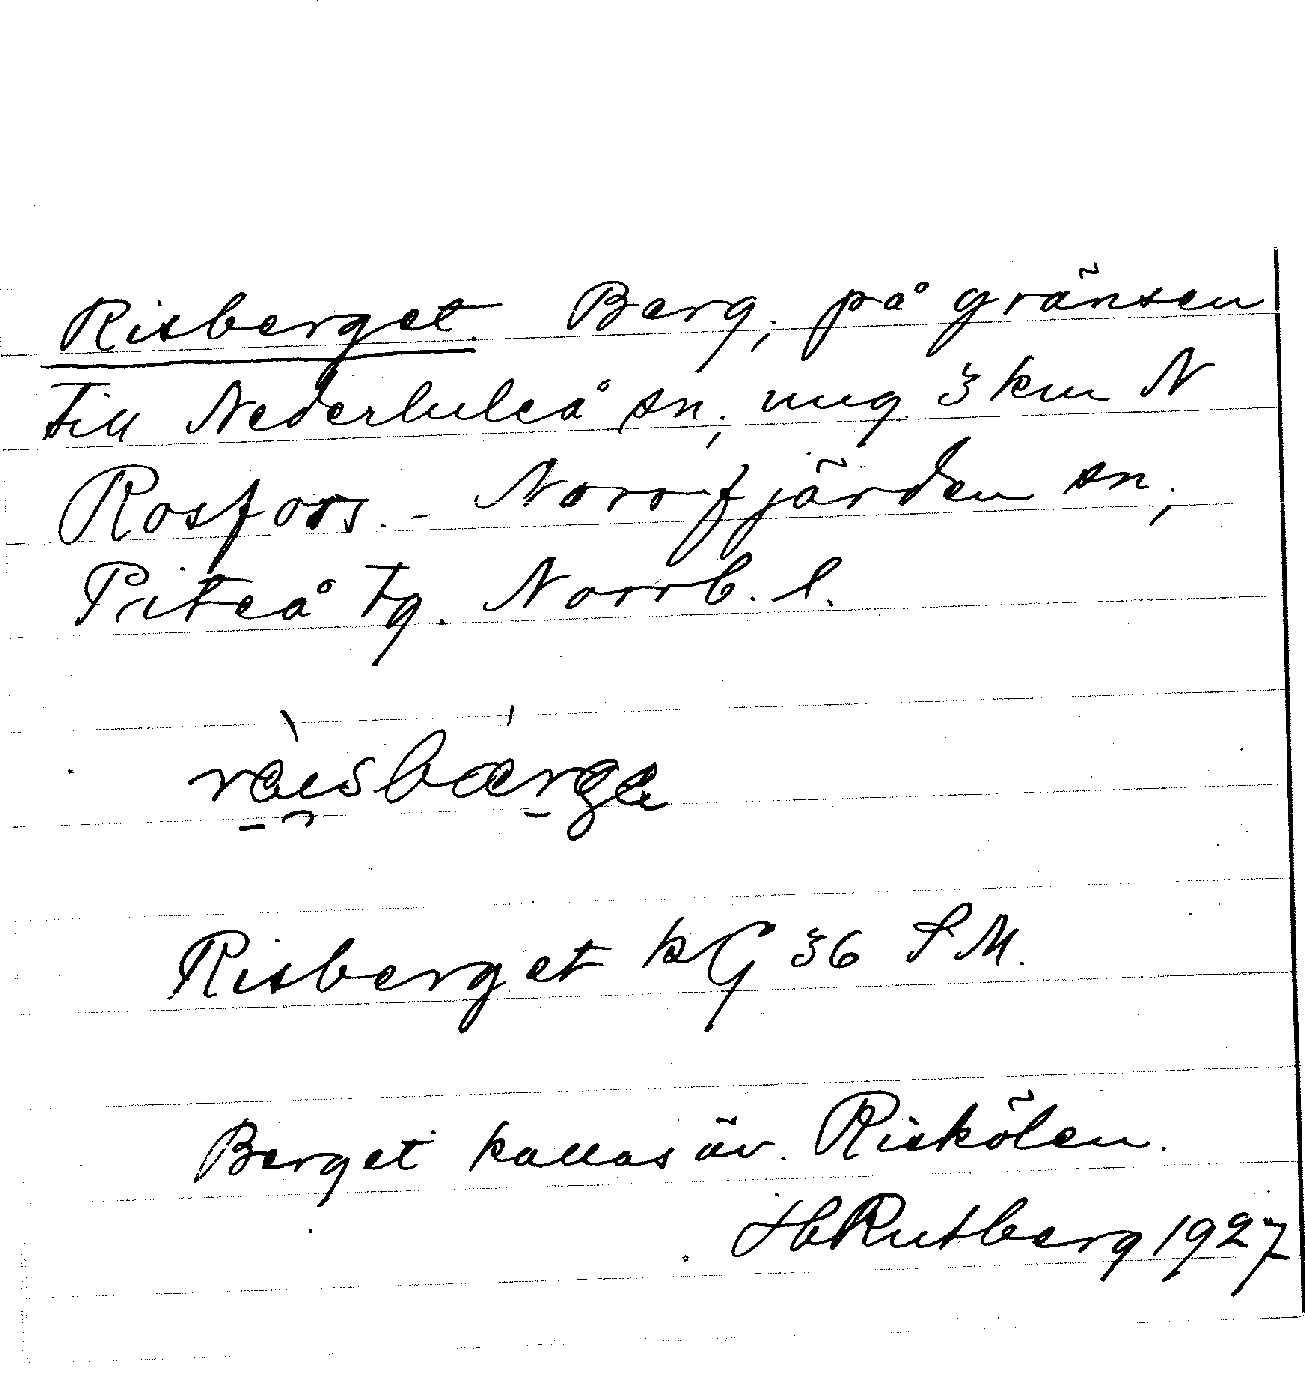 Risberget. Berg, på gränsen
till Nederluleå sn, ung 3 km N
Rosfors. - Norrfjärden sn,
Piteå tg. Norrb. l.
ràisbærge
Risberget kG 36 S M.
Berget kallas äv. Riskölen.
H Rutberg 1927